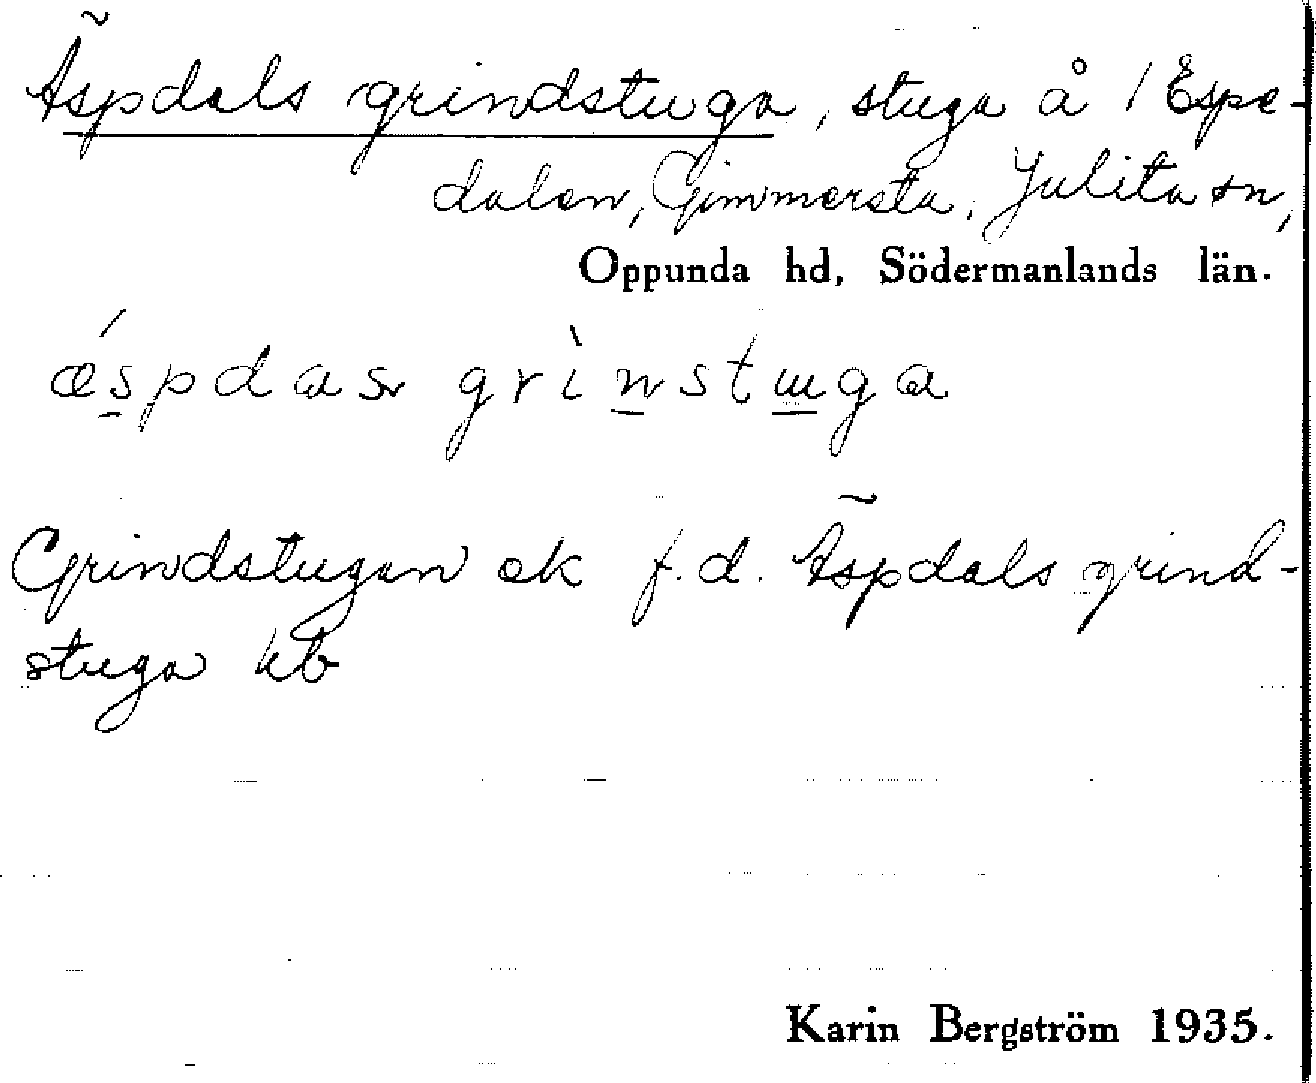 Äspdals grindstuga, stuga å 1 Espe-
dalen, Gimmersta, Julita sn,
Oppunda hd, Södermanlands län.
ǽspdas grìnstuga
Grindstugan ek f.d. Äspdals grind-
stuga kb
Karin Bergström 1935.